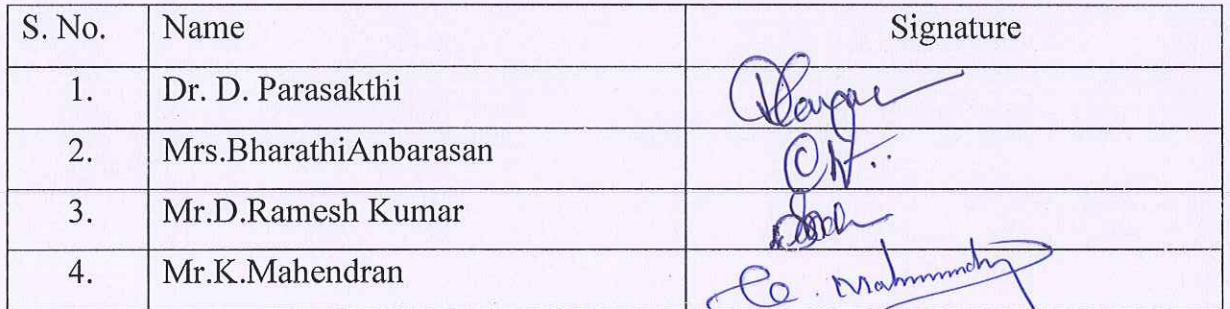 S. No. Name Signature
1. Dr. D. Parasakthi
2. Mrs.BharathiAnbarasan
3. Mr.D.Ramesh Kumar
4. Mr.K.Mahendran